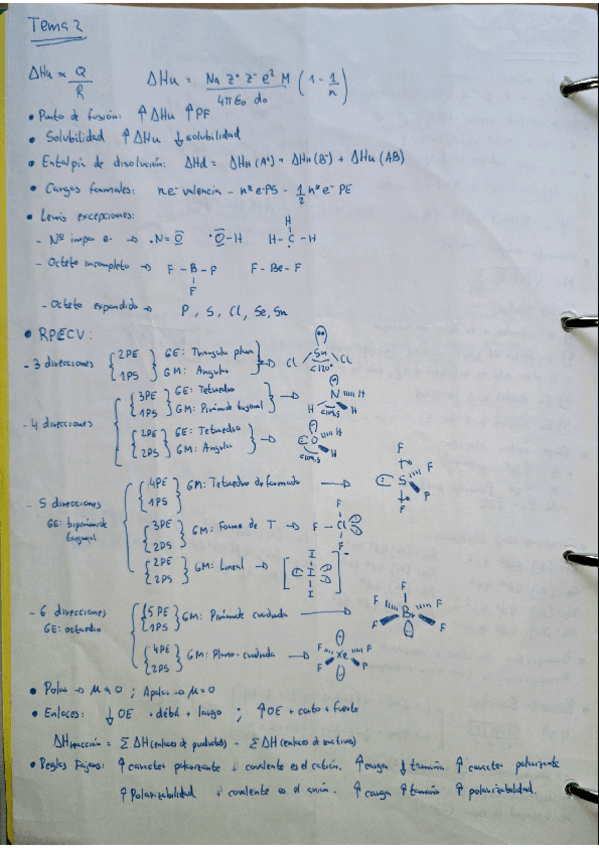 Tema 2
ΔHu ∝ Q/R   ΔHu = (Na z⁺ z⁻ e² M / 4πε₀ do) (1 - 1/n)
• Punto de fusión: ↑ΔHu ↑PF
• Solubilidad ↑ΔHu ↓solubilidad
• Entalpía de disolución: ΔHd = ΔHH(A⁺) + ΔHH(B⁻) + ΔHu(AB)
• Cargas formales: nºe⁻ valencia - nºe⁻PS - 1/2 nºe⁻ PE
• Lewis excepciones:
- Nº impar e⁻ → ·N=O ·O-H H-C-H
H
- Octeto incompleto → F-B-F F-Be-F
F
- Octeto expandido → P, S, Cl, Se, Sn
• RPECV:
- 3 direcciones { 2PE 1PS } GE: Triángulo plano GM: Angular → Cl Sn Cl <120°
- 4 direcciones { 3PE 1PS } GE: Tetraedro GM: Pirámide trigonal → N H H H <109,5
{ 2PE 2PS } GE: Tetraedro GM: Angular → O H H <109,5
- 5 direcciones GE: bipirámide trigonal { 4PE 1PS } GM: Tetraedro deformado → F S F F F
{ 3PE 2PS } GM: Forma de T → F-Cl F F
{ 2PE 2PS } GM: Lineal → [I I I]⁻
- 6 direcciones GE: octaedro { 5PE 1PS } GM: Pirámide cuadrada → F F F Br F F
{ 4PE 2PS } GM: Plano-cuadrada → F F Xe F F
• Polar → μ ≠ 0 ; Apolar → μ = 0
• Enlaces: ↓OE + débil + largo ; ↑OE + corto + fuerte
ΔH reacción = Σ ΔH (enlaces de productos) - Σ ΔH (enlaces de reactivos)
• Reglas Fajans: ↑ caracter polarizante + covalente es el catión. ↑ carga ↓ tamaño ↑ caracter polarizante
↑ Polarizabilidad + covalente es el anión. ↑ carga ↑ tamaño ↑ polarizabilidad.